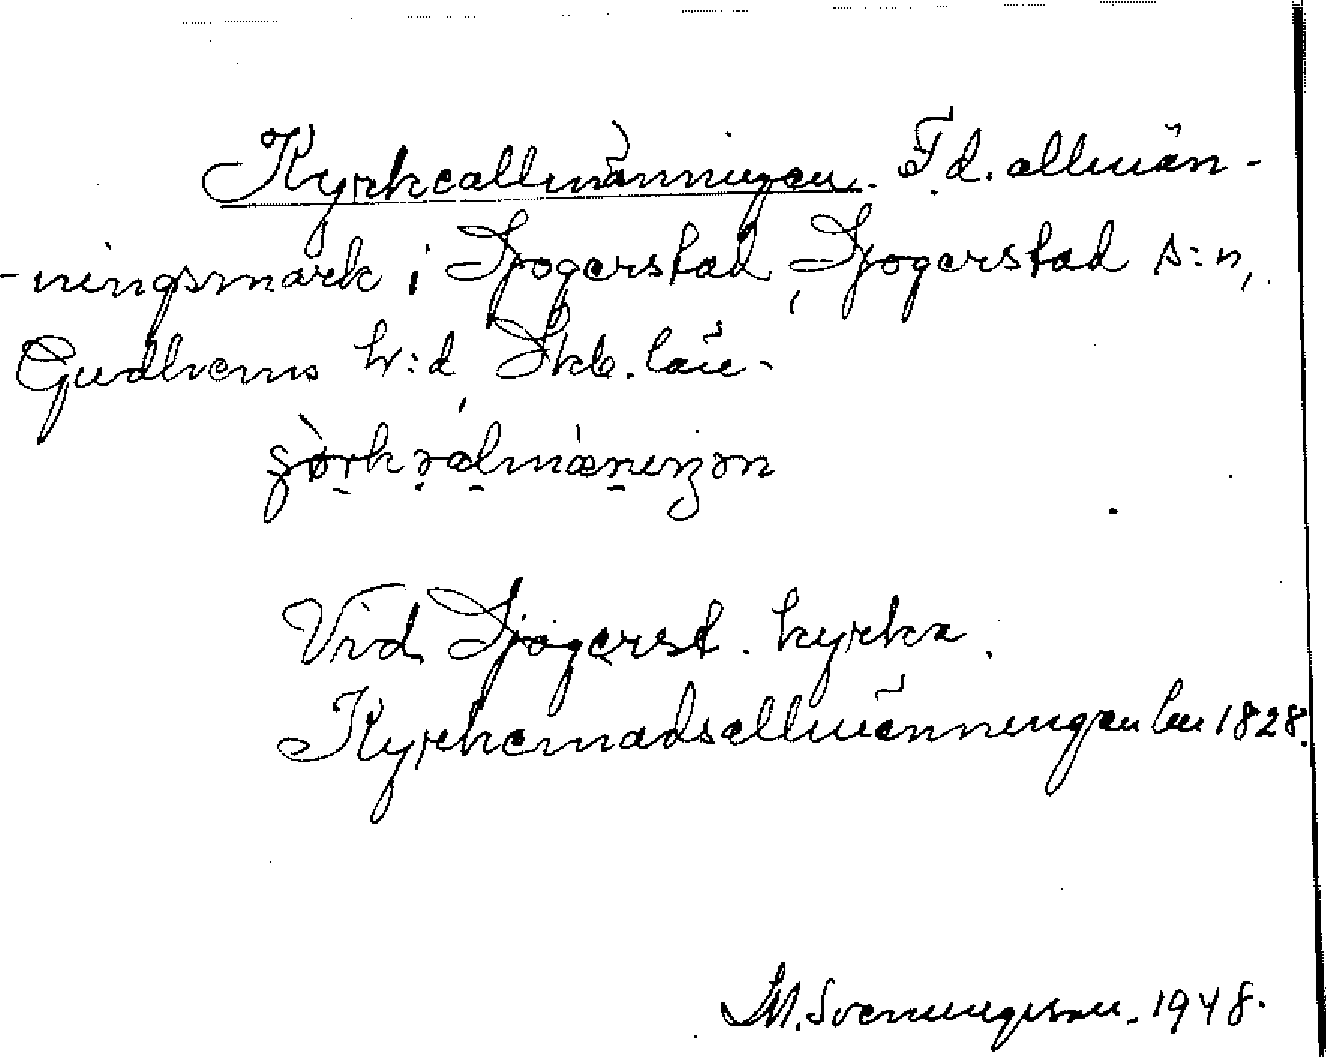 Kyrkeallmänningen. F.d. allmän-
-ningsmark i Sjogerstad, Sjogerstad s:n,
Gudhems h:d Skb. län.
Vid Sjogerst. kyrka.
Kyrkemadsallmänningen lm 1828.
M. Svenungsson. 1948.